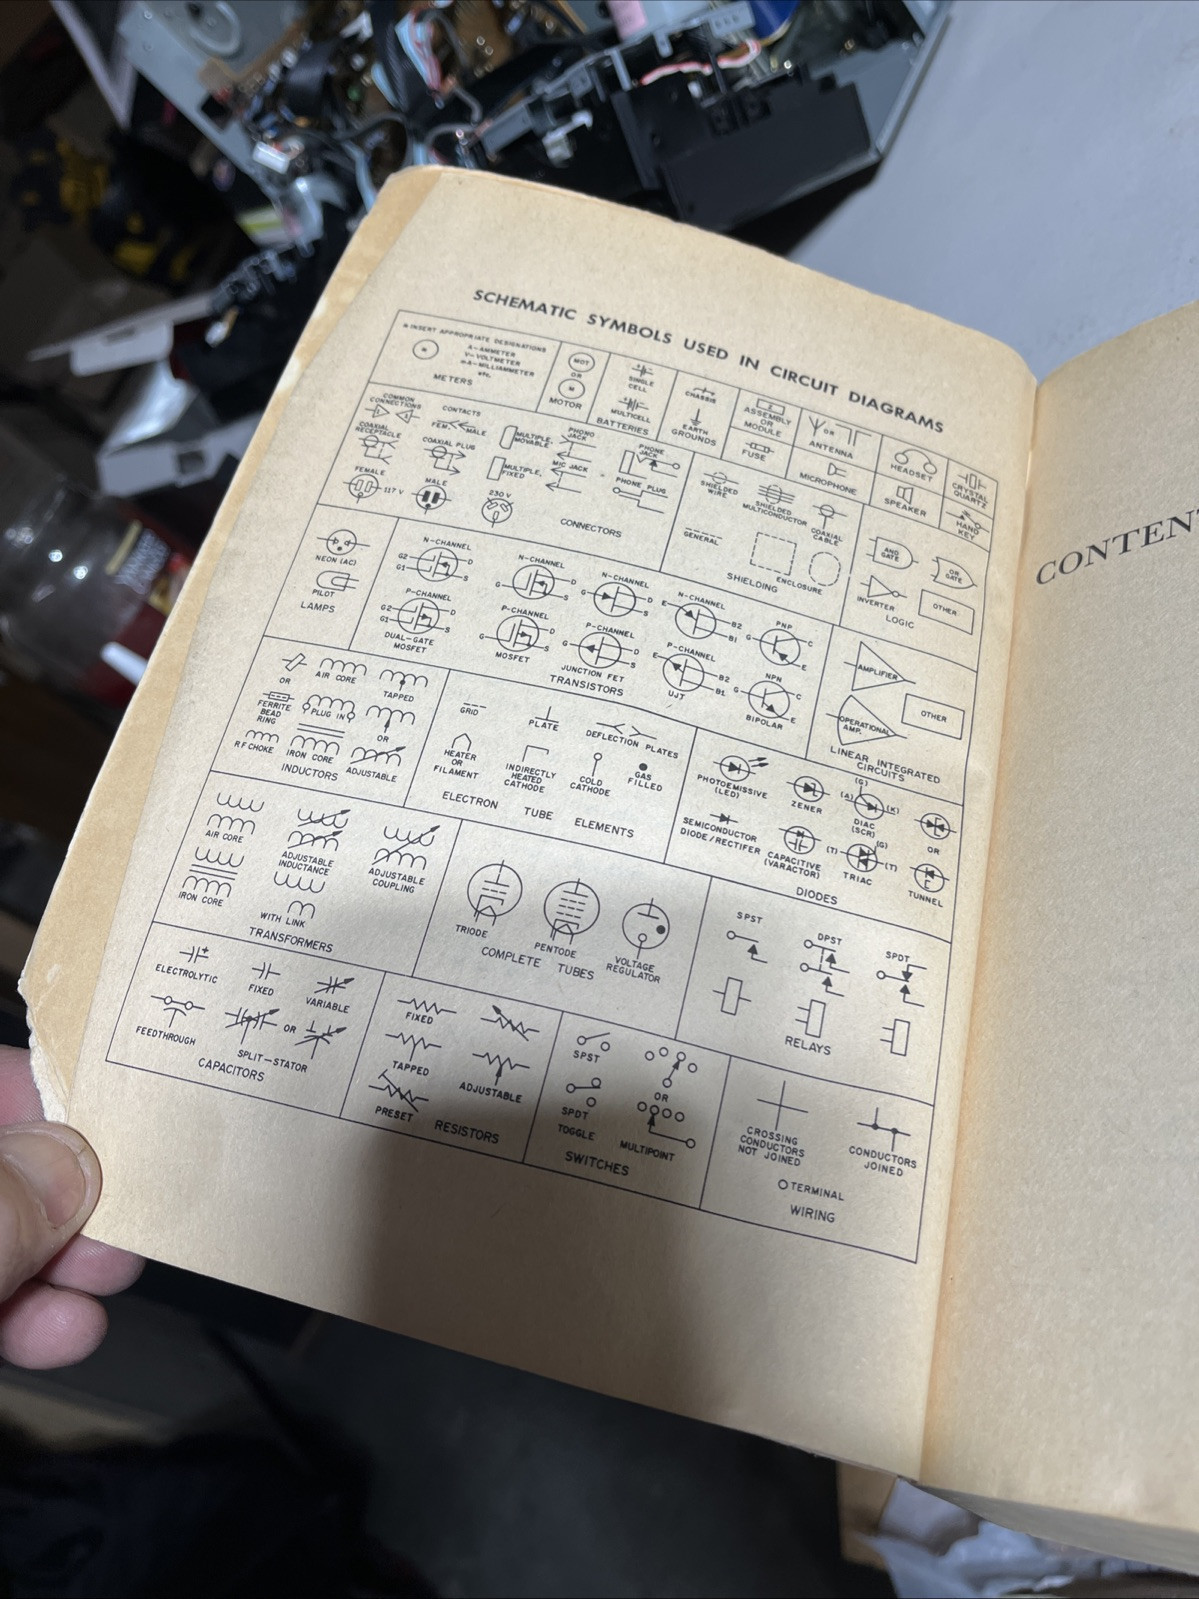 SCHEMATIC SYMBOLS USED IN CIRCUIT DIAGRAMS
* INSERT APPROPRIATE DESIGNATIONS
A-AMMETER
V-VOLTMETER
mA-MILLIAMMETER
etc.
METERS
MOT
OR
M
MOTOR
SINGLE
CELL
MULTICELL
BATTERIES
CHASSIS
EARTH
GROUNDS
ASSEMBLY
OR
MODULE
FUSE
OR
ANTENNA
MICROPHONE
HEADSET
SPEAKER
CRYSTAL
QUARTZ
HAND
KEY
COMMON
CONNECTIONS
CONTACTS
FEM.
MALE
COAXIAL
RECEPTACLE
COAXIAL PLUG
MULTIPLE,
MOVABLE
MULTIPLE,
FIXED
PHONO
JACK
MIC JACK
PHONE
JACK
PHONE PLUG
FEMALE
117 V
MALE
230 V
CONNECTORS
SHIELDED
WIRE
SHIELDED
MULTICONDUCTOR
COAXIAL
CABLE
GENERAL
ENCLOSURE
SHIELDING
AND
GATE
OR
GATE
INVERTER
OTHER
LOGIC
NEON (AC)
PILOT
LAMPS
N-CHANNEL
G2
G1
D
S
P-CHANNEL
G2
G1
D
S
DUAL-GATE
MOSFET
N-CHANNEL
G
D
S
P-CHANNEL
G
D
S
MOSFET
N-CHANNEL
G
D
S
P-CHANNEL
G
D
S
JUNCTION FET
N-CHANNEL
E
B2
B1
P-CHANNEL
E
B2
B1
UJT
PNP
C
E
NPN
C
E
BIPOLAR
TRANSISTORS
AMPLIFIER
OPERATIONAL
AMP.
OTHER
LINEAR INTEGRATED
CIRCUITS
OR
FERRITE
BEAD
RING
AIR CORE
TAPPED
PLUG IN
OR
RF CHOKE
IRON CORE
ADJUSTABLE
INDUCTORS
GRID
PLATE
DEFLECTION PLATES
HEATER
OR
FILAMENT
INDIRECTLY
HEATED
CATHODE
COLD
CATHODE
GAS
FILLED
ELECTRON TUBE ELEMENTS
PHOTOEMISSIVE
(LED)
ZENER
(G)
(A)
(K)
DIAC
(SCR)
OR
SEMICONDUCTOR
DIODE/RECTIFER
CAPACITIVE
(VARACTOR)
(T)
(G)
(T)
TRIAC
TUNNEL
DIODES
AIR CORE
ADJUSTABLE
INDUCTANCE
ADJUSTABLE
COUPLING
IRON CORE
WITH LINK
TRANSFORMERS
TRIODE
PENTODE
VOLTAGE
REGULATOR
COMPLETE TUBES
SPST
DPST
SPDT
RELAYS
ELECTROLYTIC
FIXED
VARIABLE
FEEDTHROUGH
OR
SPLIT-STATOR
CAPACITORS
FIXED
TAPPED
ADJUSTABLE
PRESET
RESISTORS
SPST
SPDT
TOGGLE
OR
MULTIPOINT
SWITCHES
CROSSING
CONDUCTORS
NOT JOINED
CONDUCTORS
JOINED
TERMINAL
WIRING
CONTENT